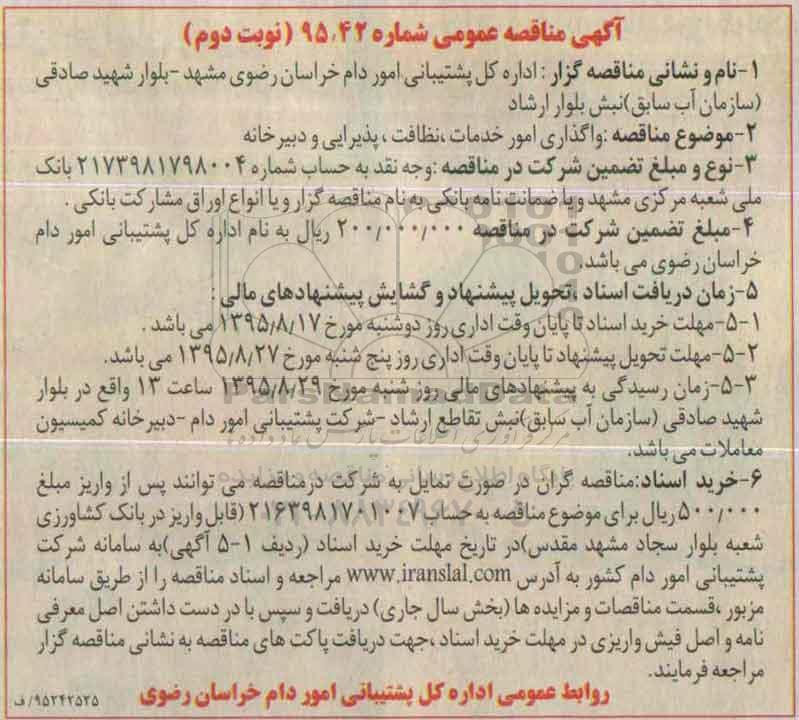 آگهی مناقصه عمومی شماره ۹۵،۴۲ (نوبت دوم)
۱-نام و نشانی مناقصه گزار : اداره کل پشتیبانی امور دام خراسان رضوی مشهد -بلوار شهید صادقی
(سازمان آب سابق)نبش بلوار ارشاد
۲-موضوع مناقصه :واگذاری امور خدمات ،نظافت ، پذیرایی و دبیرخانه
۳-نوع و مبلغ تضمین شرکت در مناقصه :وجه نقد به حساب شماره ۲۱۷۳۹۸۱۷۹۸۰۰۴ بانک
ملی شعبه مرکزی مشهد و یا ضمانت نامه بانکی به نام مناقصه گزار و یا انواع اوراق مشارکت بانکی .
۴-مبلغ تضمین شرکت در مناقصه ۲۰۰/۰۰۰/۰۰۰ ریال به نام اداره کل پشتیبانی امور دام
خراسان رضوی می باشد.
۵-زمان دریافت اسناد ،تحویل پیشنهاد و گشایش پیشنهادهای مالی :
۵-۱-مهلت خرید اسناد تا پایان وقت اداری روز دوشنبه مورخ ۱۳۹۵/۸/۱۷ می باشد .
۵-۲-مهلت تحویل پیشنهاد تا پایان وقت اداری روز پنج شنبه مورخ ۱۳۹۵/۸/۲۷ می باشد.
۵-۳-زمان رسیدگی به پیشنهادهای مالی روز شنبه مورخ ۱۳۹۵/۸/۲۹ ساعت ۱۳ واقع در بلوار
شهید صادقی (سازمان آب سابق)نبش تقاطع ارشاد -شرکت پشتیبانی امور دام -دبیرخانه کمیسیون
معاملات می باشد.
۶-خرید اسناد:مناقصه گران در صورت تمایل به شرکت درمناقصه می توانند پس از واریز مبلغ
۵۰۰/۰۰۰ ریال برای موضوع مناقصه به حساب ۲۱۶۳۹۸۱۷۰۱۰۰۷ (قابل واریز در بانک کشاورزی
شعبه بلوار سجاد مشهد مقدس)در تاریخ مهلت خرید اسناد (ردیف ۱-۵ آگهی)به سامانه شرکت
پشتیبانی امور دام کشور به آدرس www.iranslal.com مراجعه و اسناد مناقصه را از طریق سامانه
مزبور ،قسمت مناقصات و مزایده ها (بخش سال جاری) دریافت و سپس با در دست داشتن اصل معرفی
نامه و اصل فیش واریزی در مهلت خرید اسناد ،جهت دریافت پاکت های مناقصه به نشانی مناقصه گزار
مراجعه فرمایند.
روابط عمومی اداره کل پشتیبانی امور دام خراسان رضوی
۹۵۲۴۲۵۲۵/ف
ParsNamadData